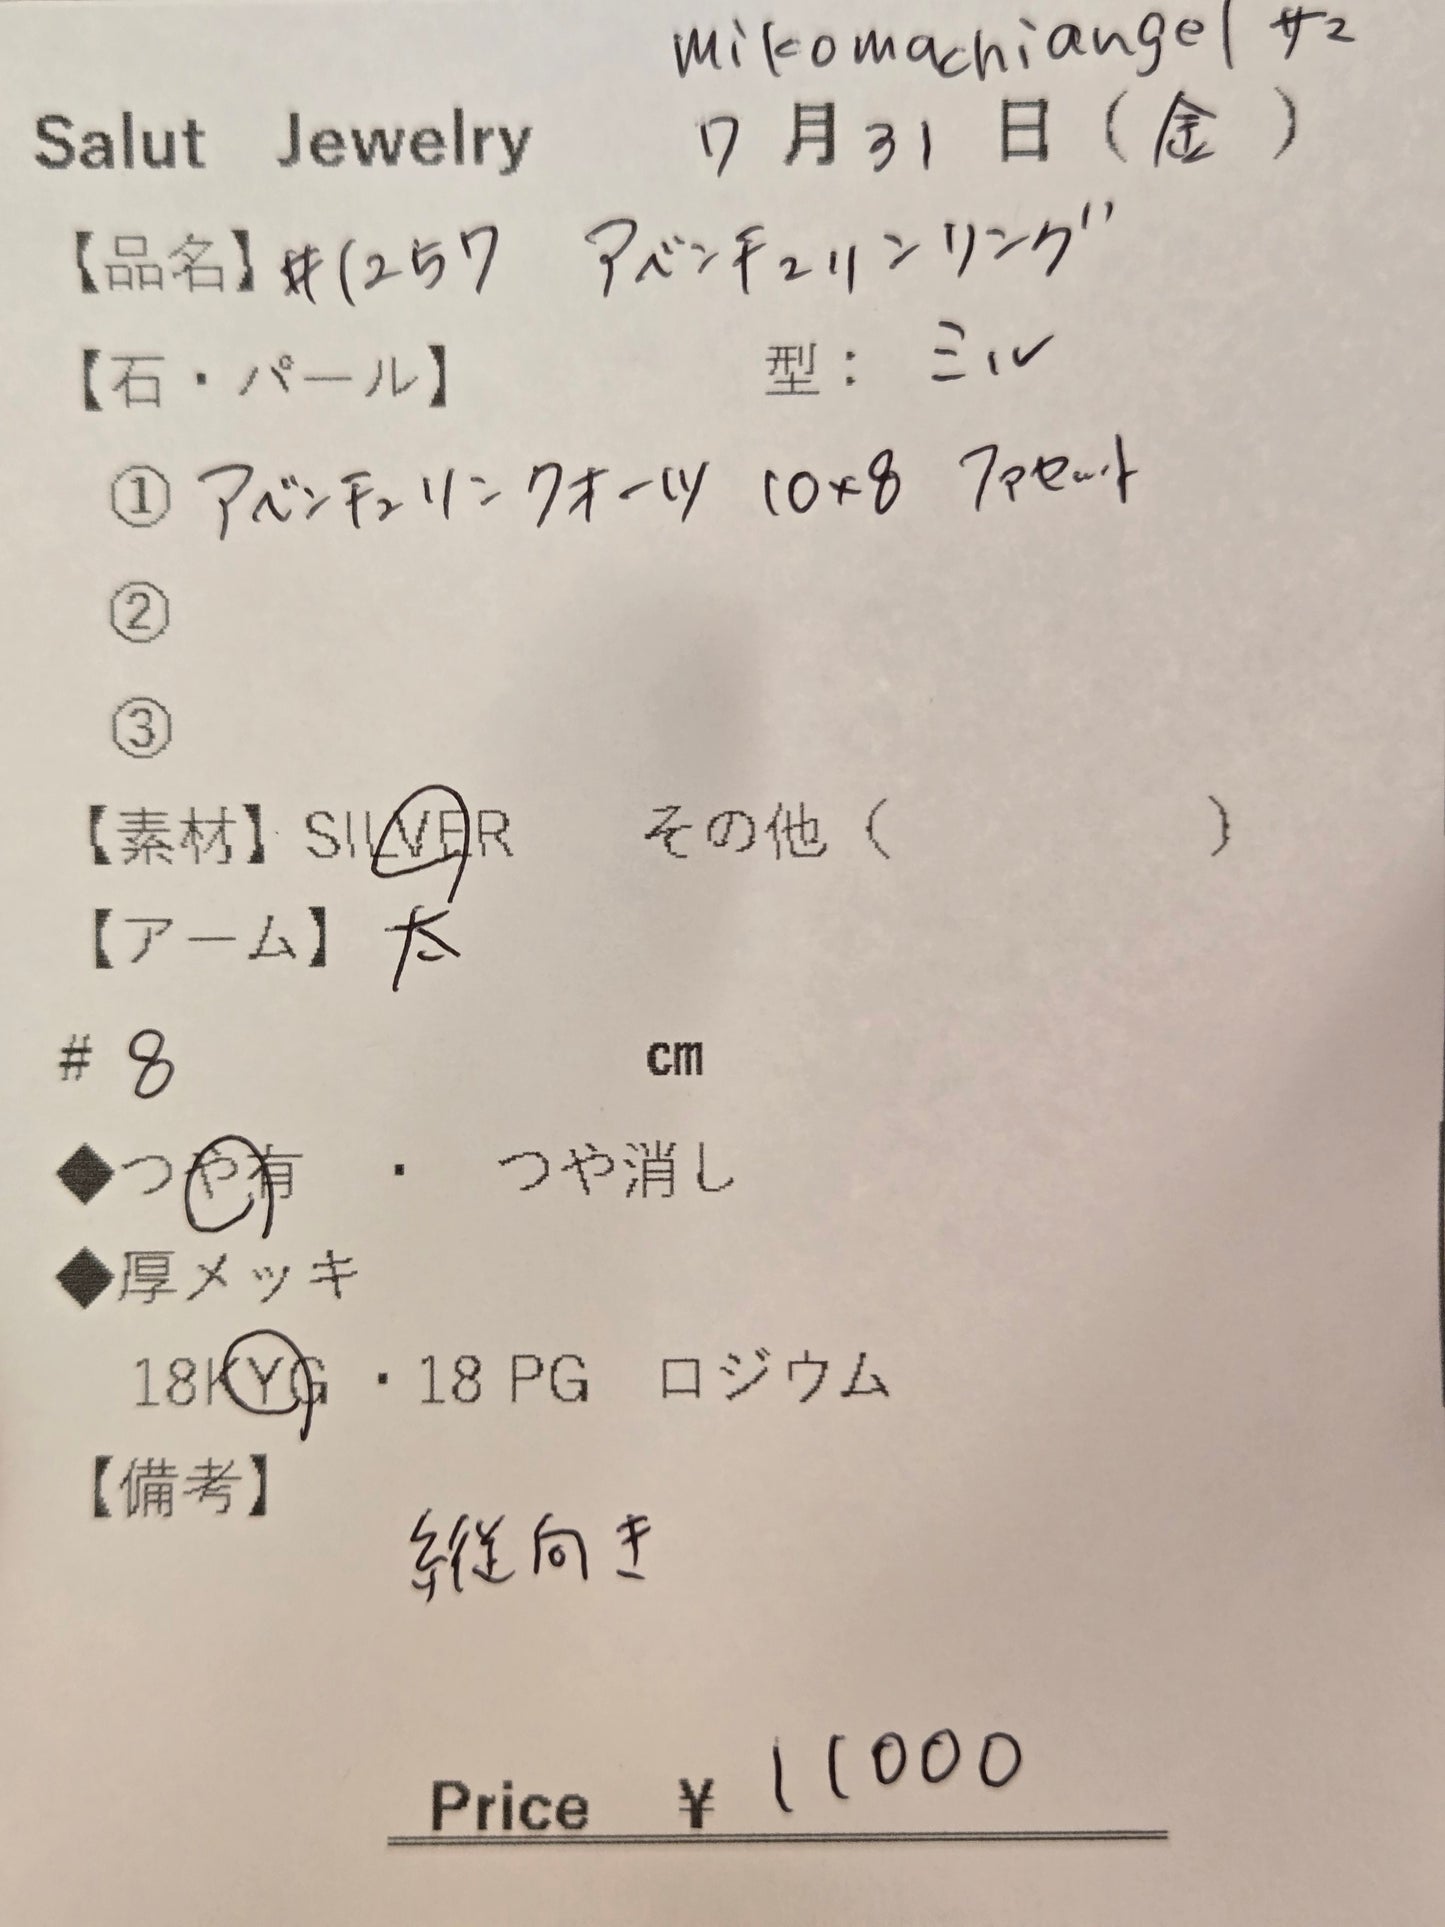 mikomachiangel サマ
Salut Jewelry 7月31日(金)
【品名】#1257 アベンチュリンリング
【石・パール】 型:ミル
①アベンチュリンクオーツ 10×8 ファセット
②
③
【素材】SILVER その他( )
【アーム】太
#8 cm
◆つや有 ・ つや消し
◆厚メッキ
18KYG ・18 PG ロジウム
【備考】
縦向き
Price ¥11000